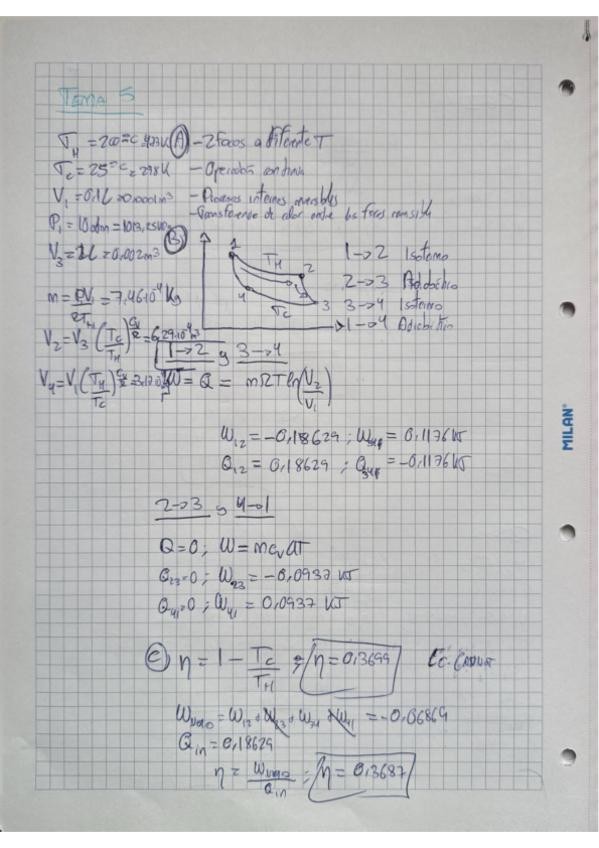 TEMA 5
T_H = 200ºC = 473K (A) - 2 Focos a diferente T
T_C = 25ºC = 298K - Operación continua
V_1 = 0,1L = 0,0001m³ - Procesos internos reversibles
- Transferencia de calor entre los focos reversible
P_1 = 10atm = 1013,25
V_3 = 2L = 0,002m³ (B)
1 T_H 2
4 T_C 3
1→2 Isotermo
2→3 Adiabático
3→4 Isotermo
1→4 Adiabático
m = PV_1/RT_H = 7,46·10⁻⁴ Kg
V_2 = V_3 (T_C/T_H)^(Cv/R) = 6,29·10⁻⁴ m³
V_4 = V_1 (T_H/T_C)^(Cv/R) = 3,17·10
1→2 y 3→4
W = Q = mRT ln(V_2/V_1)
W_12 = -0,18629 ; W_34 = 0,1176 kJ
Q_12 = 0,18629 ; Q_34 = -0,1176 kJ
2→3 y 4→1
Q = 0 ; W = mc_vΔT
Q_23 = 0 ; W_23 = -0,0937 kJ
Q_41 = 0 ; W_41 = 0,0937 kJ
(C) η = 1 - T_C/T_H ; η = 0,3699
W_neto = W_12 + W_23 + W_34 + W_41 = -0,06869
Q_in = 0,18629
η = W_neto/Q_in ; η = 0,3687
MILAN